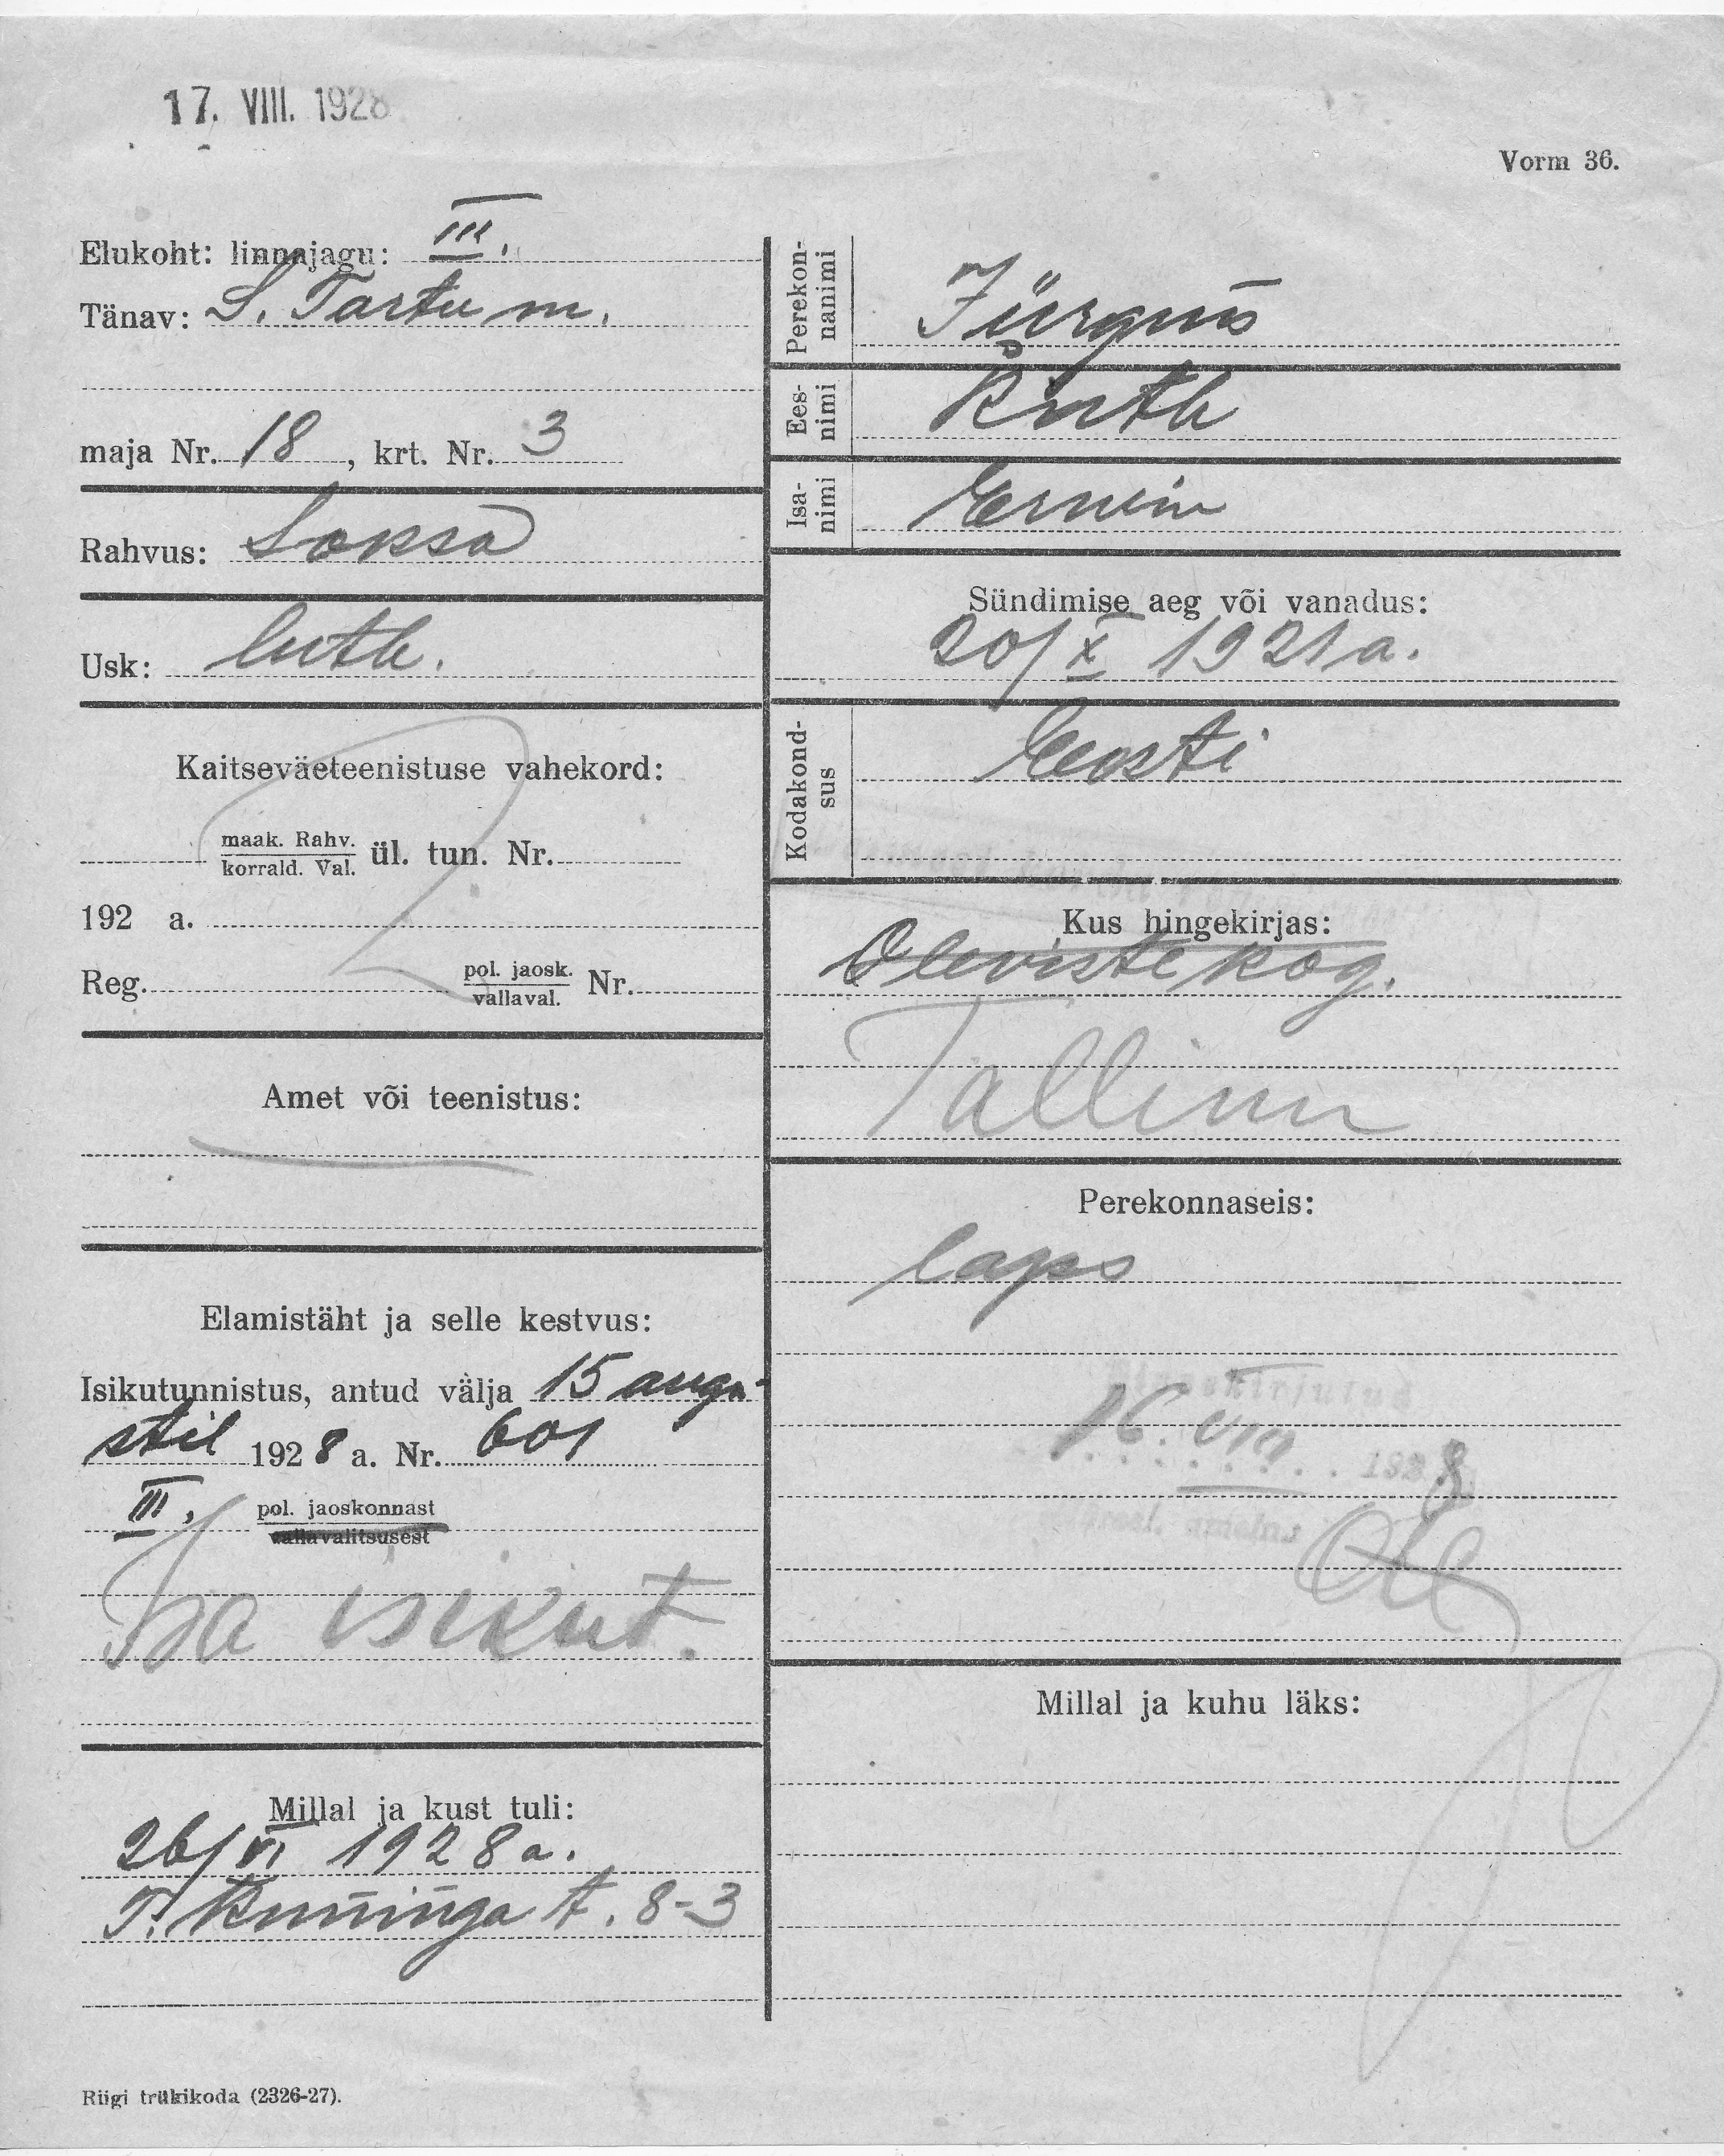 17. VIII. 1928
Vorm 36.
Elukoht: linnajagu: III.
Tänav: S. Tartu m.
maja Nr. 18, krt. Nr. 3
Rahvus: Saksa
Usk: luth.
Kaitseväeteenistuse vahekord:
maak. Rahv.
korrald. Val. ül. tun. Nr.
192 a.
Reg. pol. jaosk.
vallaval. Nr.
Amet või teenistus:
Elamistäht ja selle kestvus:
Isikutunnistus, antud välja 15 augu-
stil 1928 a. Nr. 601
III. pol. jaoskonnast
vallavalitsusest
Isa isikut.
Millal ja kust tuli:
26/VI 1928 a.
T. Kuninga t. 8-3
Riigi trükikoda (2326-27).
Perekon-
nanimi
Jürgens
Ees-
nimi
Ruth
Isa-
nimi
Erwin
Sündimise aeg või vanadus:
20/X 1921 a.
Kodakond-
sus
Eesti
Kus hingekirjas:
Oleviste kog.
Tallinn
Perekonnaseis:
laps
Sissekirjutud
16. VIII 1928
Millal ja kuhu läks: